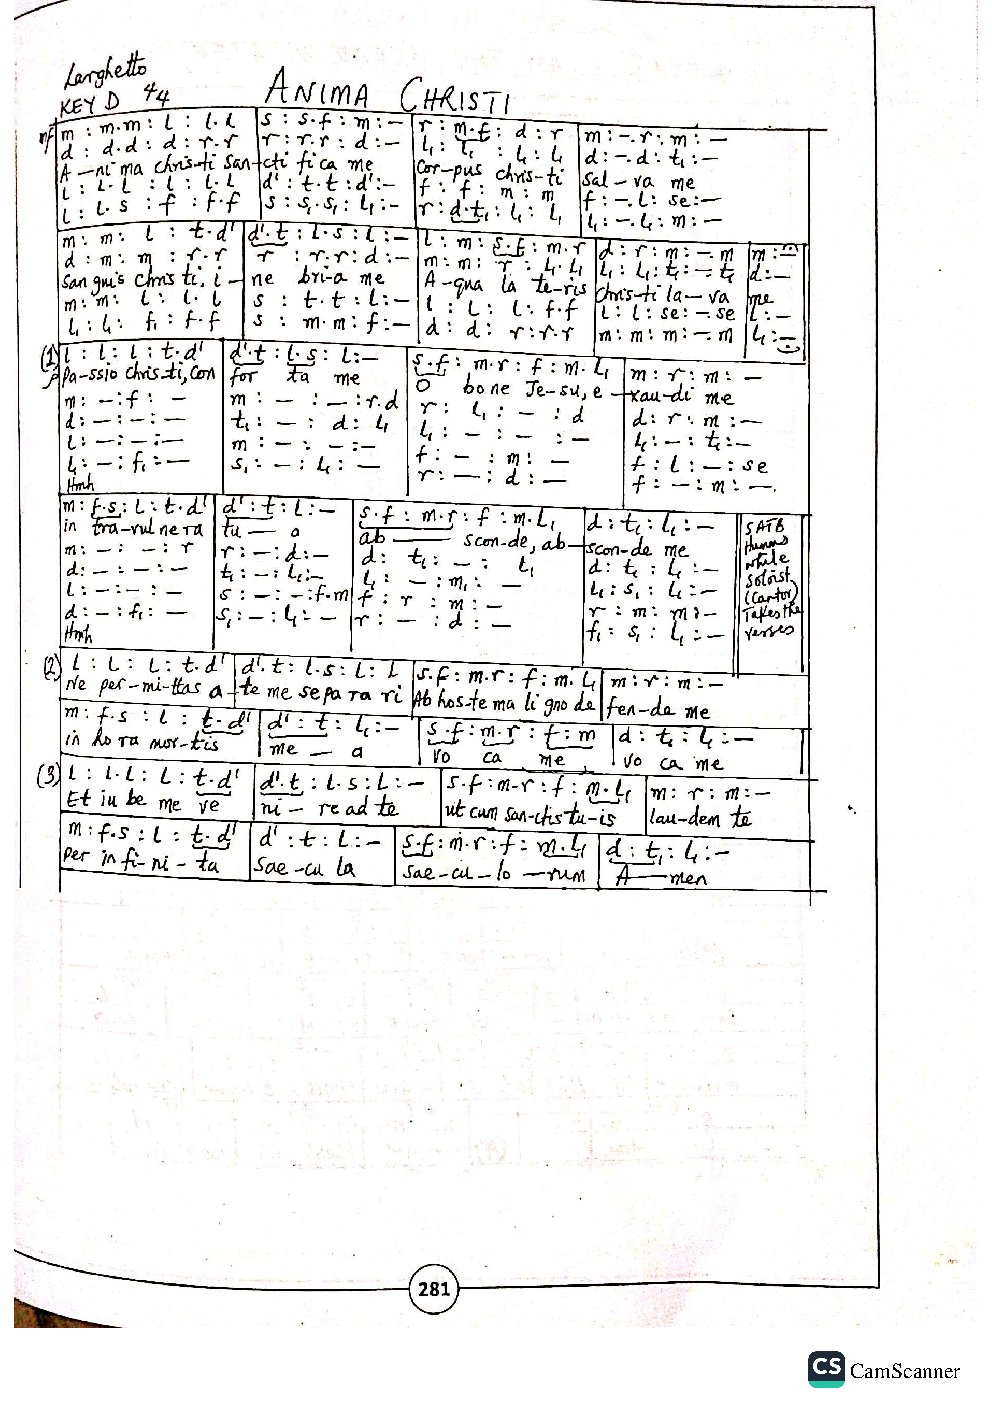 Larghetto
KEY D 4/4 ANIMA CHRISTI
mf
m : m.m : l : l.l | s : s.f : m : – | r : m.f : d : r | m : –.r : m : –
d : d.d : d : r.r | r : r.r : d : – | l₁ : l₁ : l₁ : l₁ | d : –.d : t₁ : –
A – ni ma chris-ti san-cti fi ca me Cor-pus chris-ti Sal – va me
l : l.l : l : l.l | d' : t.t : d' : – | f : f : m : m | f : –.l : se : –
l : l.s : f : f.f | s : s₁.s₁ : l₁ : – | r : d.t₁ : l₁ : l₁ | l₁ : –.l : m : –
m : m : l : t.d' | d'.t : l.s : l : – | l : m : s.f : m.r | d : r : m : –.m | m : –
d : m : m : r.r | r : r.r : d : – | m : m : r : l₁.l₁ | l₁ : l₁ : t₁ : –.t₁ | d : –
San guis chris ti, i – ne bri-a me A – qua la te-ris chris-ti la – va me
m : m : l : l.l | s : t.t : l : – | l : l : l : f.f | l : l : se : –.se | l : –
l₁ : l₁ : f₁ : f.f | s : m.m : f : – | d : d : r : r.r | m : m : m : –.m | l₁ : –
(1) l : l : l : t.d' | d'.t : l.s : l : – | s.f : m.r : f : m.l₁ | m : r : m : –
p Pa-ssio chris-ti, con for ta me O bo ne Je-su, e – xau-di me
m : – : f : – | m : – : – : r.d | r : l₁ : – : d | d : r : m : –
d : – : – : – | t₁ : – : d : l₁ | l₁ : – : – : – | l₁ : – : t₁ : –
l : – : – : – | m : – : – : – | f : – : m : – | f : l : – : se
l₁ : – : f₁ : – | s₁ : – : l₁ : – | r : – : d : – | f : – : m : –.
Hmh
m : f.s : l : t.d' | d' : t : l : – | s.f : m.r : f : m.l₁ | d : t₁ : l₁ : –
in tra-vul ne ra tu – a ab – scon-de, ab – scon-de me
m : – : – : r | r : – : d : – | d : t₁ : – : l₁ | d : t₁ : l₁ : –
d : – : – : – | t₁ : – : l₁ : – | l₁ : – : m₁ : – | l₁ : s₁ : l₁ : –
l : – : – : – | s : – : – : f.m | f : r : m : – | r : m : m : –
d : – : f₁ : – | s₁ : – : l₁ : – | r : – : d : – | f₁ : s₁ : l₁ : –
Hmh
SATB
Hums
while
Soloist
(Cantor)
Takes the
verses
(2) l : l : l : t.d' | d'.t : l.s : l : l | s.f : m.r : f : m.l₁ | m : r : m : –
Ne per-mi-ttas a – te me se pa ra ri Ab hos-te ma li gno de fen-de me
m : f.s : l : t.d' | d' : t : l₁ : – | s.f : m.r : f : m | d : t₁ : l₁ : –
in ho ra mor-tis me – a vo ca me, vo ca me
(3) l : l.l : l : t.d' | d'.t : l.s : l : – | s.f : m-r : f : m.l₁ | m : r : m : –
Et iu be me ve ni – re ad te ut cum san-ctis tu-is lau-dem te
m : f.s : l : t.d' | d' : t : l : – | s.f : m.r : f : m.l₁ | d : t₁ : l₁ : –
per in fi-ni-ta Sae-cu la sae-cu-lo – rum A – men
281
CS CamScanner